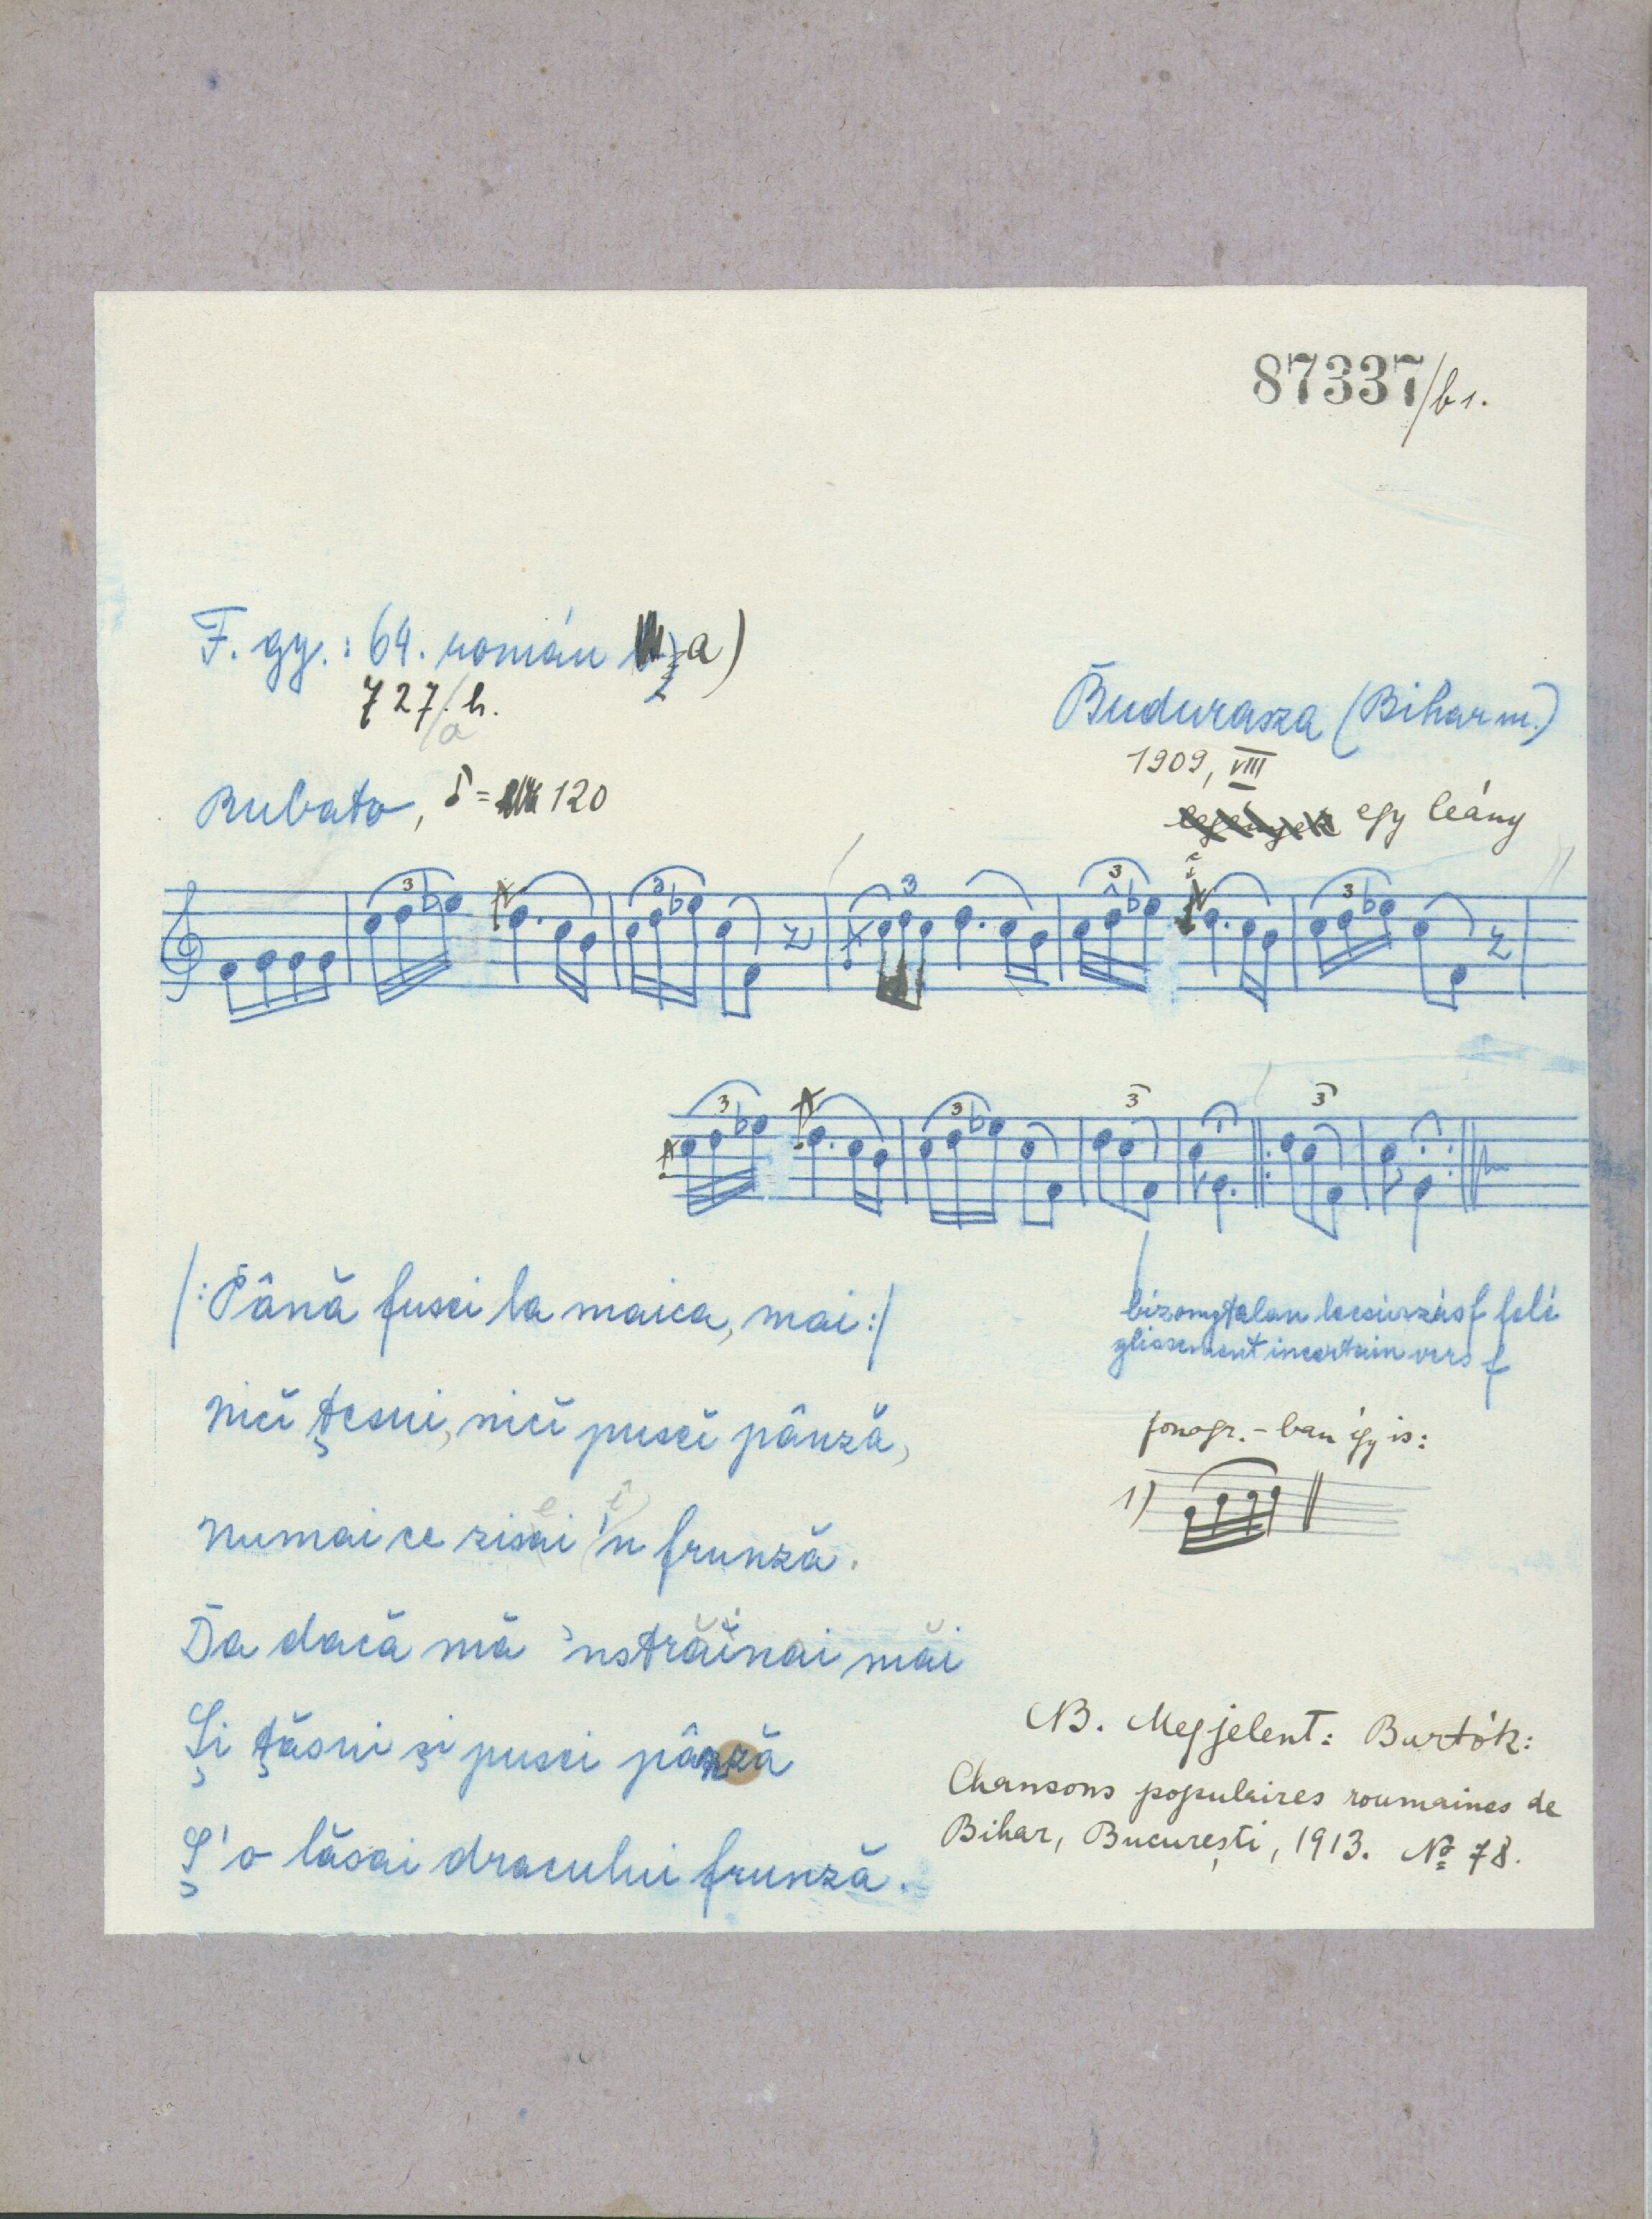 87337/b1.
F. gy.: 64. román a)
727/h.
a
Budurasza (Bihar m.)
1909, VIII
egy leány
Rubato, = 120
3 3 3 3 3
3 3 3 3
/: Până fusei la maica, mai :/
nicĭ țesui, nicĭ puseĭ pânză,
numai ce zisai 'n frunză.
e î
Da dacă mă 'nstrăĭnai măi
Și țăsui și pusei pânză
Ș'o lăsai dracului frunză.
bizonytalan lecsúszás f felé
glissement incertain vers f
fonogr.-ban így is:
1)
NB. Megjelent: Bartók:
Chansons populaires roumaines de
Bihar, București, 1913. No 78.